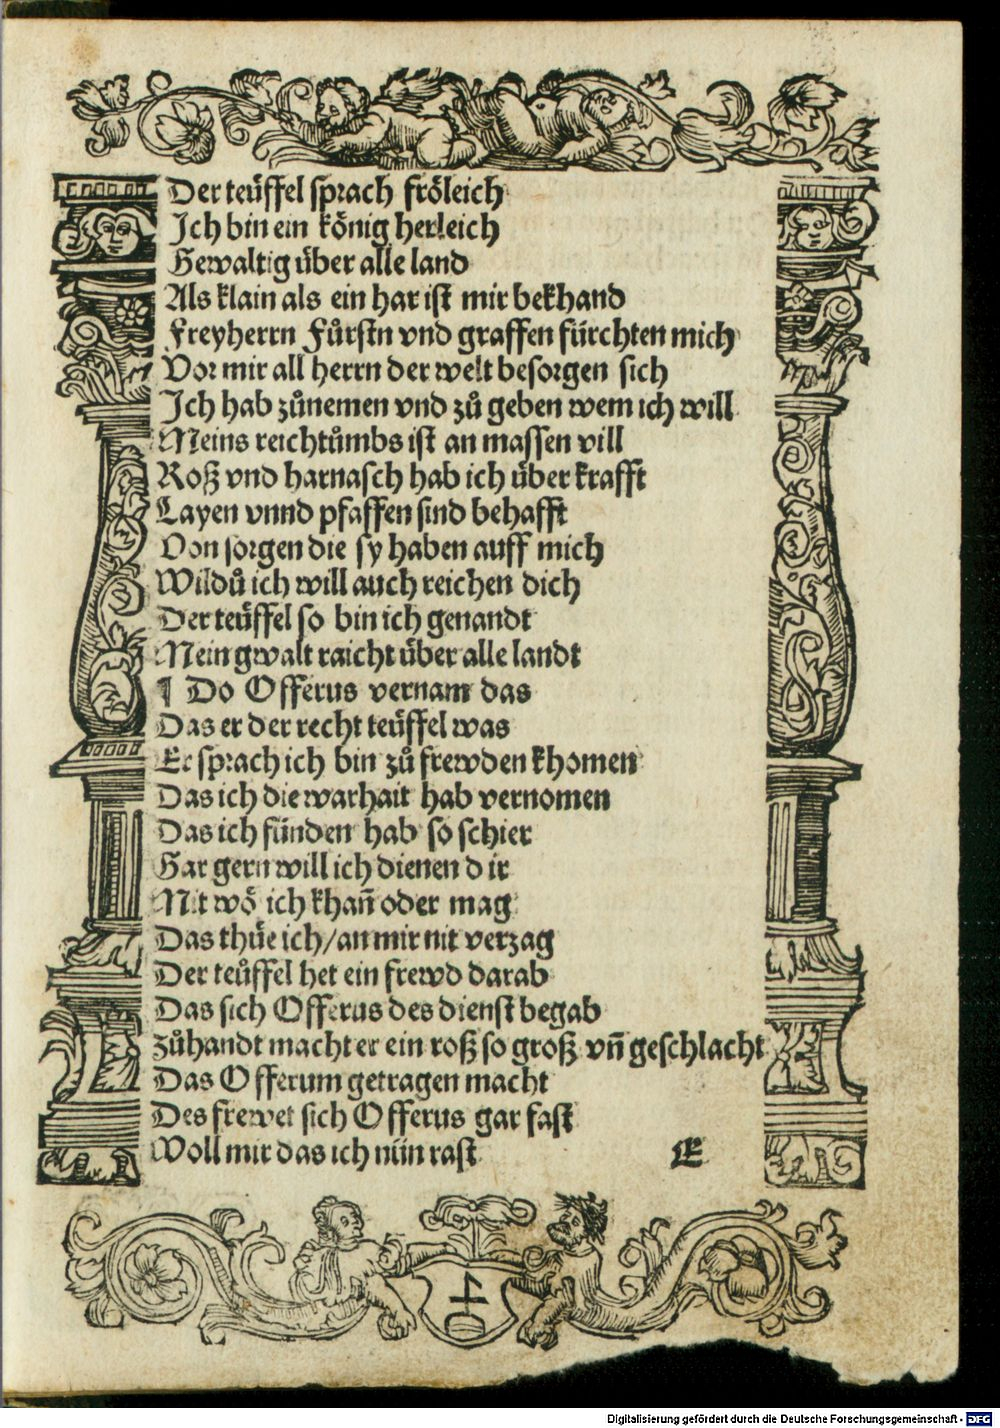 Der teüffel sprach fröleich
Ich bin ein könig herleich
Gewaltig über alle land
Als klain als ein har ist mir bekhand
Freyherrn Fürstn vnd graffen fürchten mich
Vor mir all herrn der welt besorgen sich
Ich hab zůnemen vnd zů geben wem ich will
Meins reichtůmbs ist an massen vill
Roß vnd harnasch hab ich über krafft
Layen vnnd pfaffen sind behafft
Von sorgen die sy haben auff mich
Wildů ich will auch reichen dich
Der teüffel so bin ich genandt
Mein gwalt raicht über alle landt
¶ Do Offerus vernam das
Das er der recht teüffel was
Er sprach ich bin zů frewden khomen
Das ich die warhait hab vernomen
Das ich fünden hab so schier
Gar gern will ich dienen dir
Nit wö ich khan̄ oder mag
Das thüe ich/an mir nit verzag
Der teüffel het ein frewd darab
Das sich Offerus des dienst begab
zůhandt macht er ein roß so groß vn̄ geschlacht
Das Offerum getragen macht
Des frewet sich Offerus gar fast
Woll mir das ich nün rast
E
Digitalisierung gefördert durch die Deutsche Forschungsgemeinschaft - DFG